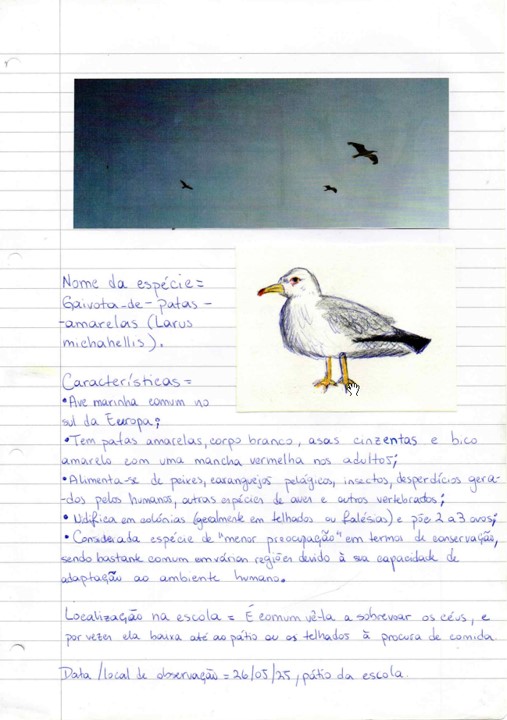 Nome da espécie =
Gaivota-de-patas-
-amarelas (Larus
michahellis).
Características =
• Ave marinha comum no
sul da Europa;
• Tem patas amarelas, corpo branco, asas cinzentas e bico
amarelo com uma mancha vermelha nos adultos;
• Alimenta-se de peixes, caranguejos pelágicos, insectos, desperdícios gera-
-dos pelos humanos, outras espécies de aves e outros vertebrados;
• Nidifica em colónias (geralmente em telhados ou falésias) e põe 2 a 3 ovos;
• Considerada espécie de "menor preocupação" em termos de conservação,
sendo bastante comum em várian regiões devido à sua capacidade de
adaptação ao ambiente humano.
Localização na escola = É comum vê-la a sobrevoar os céus, e
por vezes ela baixa até ao pátio ou os telhados à procura de comida.
Data / local de observação = 26/05/25, pátio da escola.